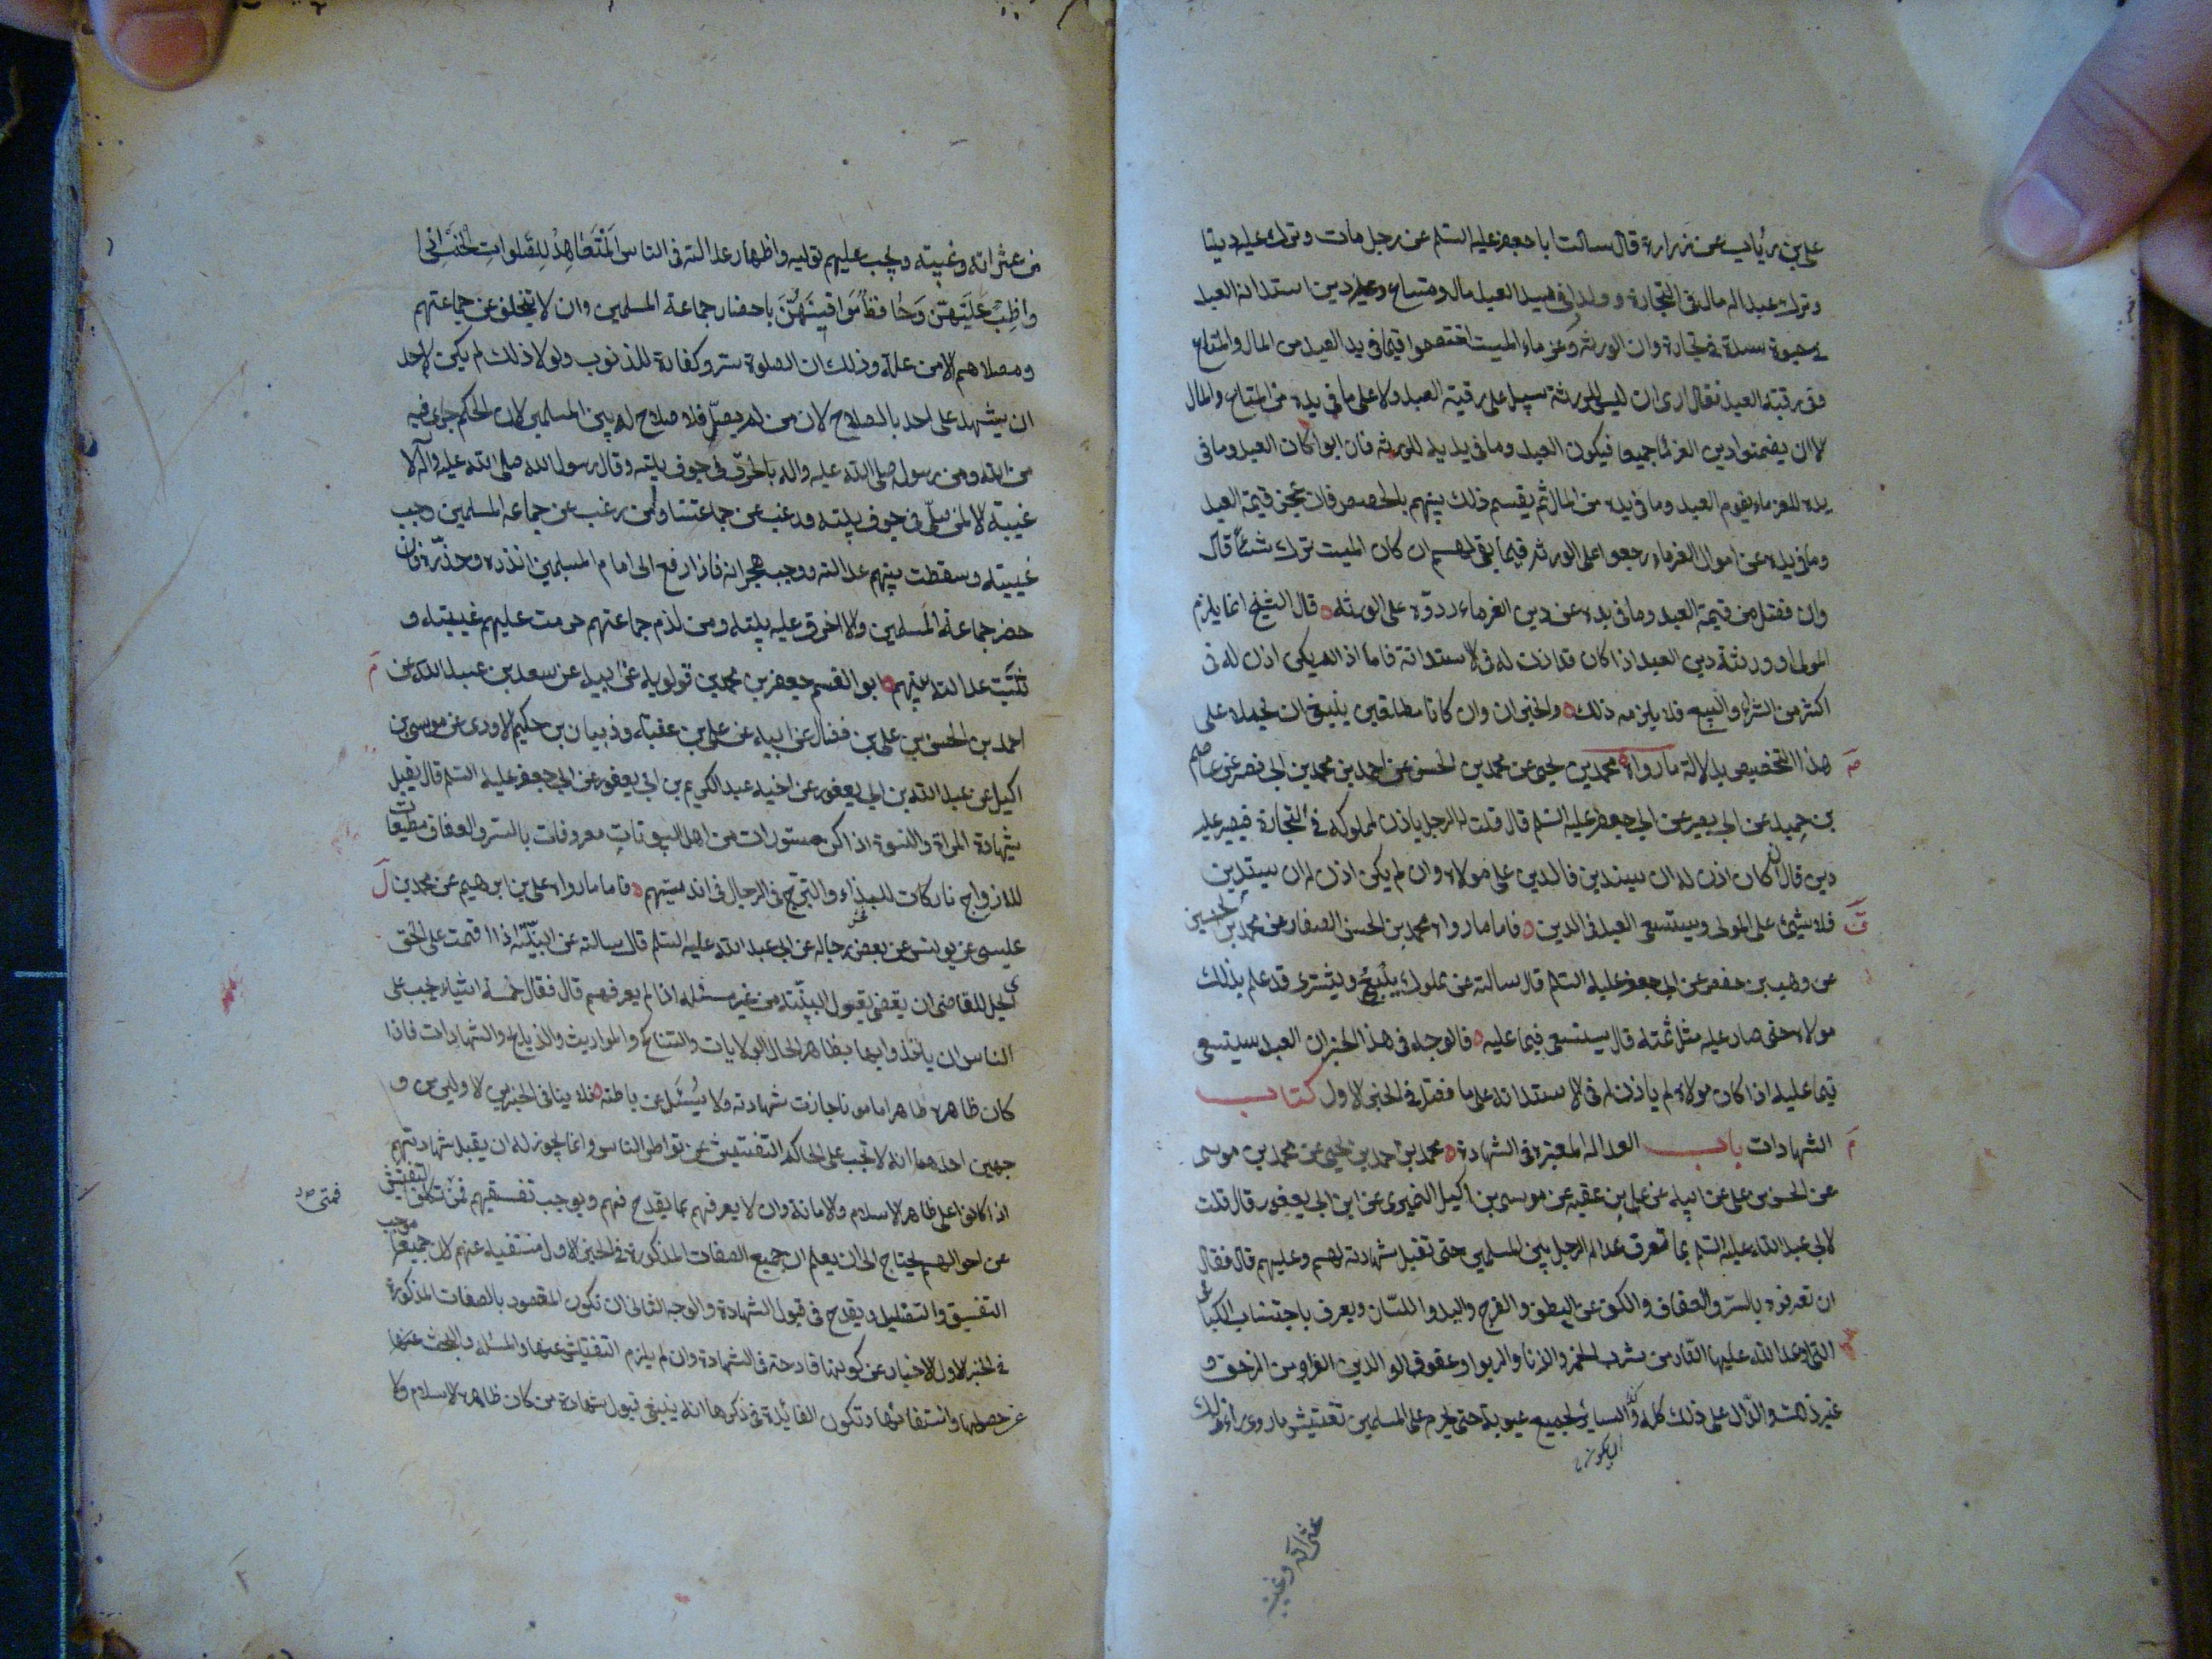 علي بن رئاب عن زرارة قال سالت ابا جعفر عليه السلم عن رجل مات وترك عليه دينا
وترك عبدا له مال في التجارة وولدا وفي يد العبد مال ومتاع وعليه دين استدانه العبد
في حيوة سيده في تجارة وان الورثة وغرماء الميت اختصموا فيما في يد العبد من المال والمتاع
وفي رقبة العبد فقال ارى ان ليس للورثة سبيل على رقبة العبد ولا على ما في يده من المتاع والمال
الا ان يضمنوا دين الغرماء جميعا فيكون العبد وما في يديه للورثه فان ابوا كان العبد وما في
يده للغرماء يقوم العبد وما في يده من المال ثم يقسم ذلك بينهم بالحصص فان عجز قيمة العبد
وما في يده عن اموال الغرماء رجعوا على الورثه فيما بقي لهم ان كان الميت ترك شيئا قال
وان فضل من قيمة العبد وما في يده عن دين الغرماء ردوه على الورثه قال الشيخ انما يلزم
المولى او ورثته دين العبد اذا كان قد اذن له في الاستدانة فاما اذا لم يكن اذن له في
اكثر من الشراء والبيع فلا يلزمه ذلك والخبران وان كانا مطلقين ينبغي ان نحمله على
هذا التخصيص بدلالة ما رواه محمد بن يحيى عن محمد بن الحسن عن احمد بن محمد بن ابي نصر عن عاصم
بن حميد عن ابي بصير عن ابي جعفر عليه السلم قال قلت له الرجل ياذن لمملوكه في التجارة فيصير عليه
دين قال ان كان اذن له ان يستدين فالدين على مولاه وان لم يكن اذن له ان يستدين
فلا شيئ على المولى ويستسعى العبد في الدين فاما ما رواه محمد بن الحسن الصفار عن محمد بن الحسين
عن وهيب بن حفص عن ابي جعفر عليه السلم قال سالته عن مملوك يبيع ويشتري قد علم بذلك
مولاه حتى صار عليه مثل ثمنه قال يستسعى فيما عليه فالوجه في هذا الخبر ان العبد يستسعى
فيما عليه اذا كان مولاه لم ياذن له في الاستدانه على ما فصل في الخبر الاول كتاب
الشهادات باب العداله المعتبرة في الشهادة محمد بن احمد بن يحيى عن محمد بن موسى
عن الحسن بن علي عن ابيه عن علي بن عقبه عن موسى بن اكيل النميري عن ابن ابي يعفور قال قلت
لابي عبد الله عليه السلم بما تعرف عدالة الرجل بين المسلمين حتى تقبل شهادته لهم وعليهم قال فقال
ان تعرفوه بالستر والعفاف والكف عن البطن والفرج واليد واللسان ويعرف باجتناب الكبائر
التي اوعد الله عليها النار من شرب الخمر والزنا والربوا وعقوق الوالدين الفرار من الزحف و
غير ذلك والدال على ذلك كله والساتر لجميع عيوبه حتى يحرم على المسلمين تفتيش ما وراء ذلك
من عثراته وغيبته ويجب عليهم توليه واظهار عدالته في الناس المتعاهد للصلوات الخمس اذا
واظب عليهن وحافظ مواقيتهن باحضار جماعة المسلمين وان لا يتخلف عن جماعتهم
ومصلاهم الا من علة وذلك ان الصلوة ستر وكفارة للذنوب ولولا ذلك لم يكن لاحد
ان يشهد على احد بالصلاح لان من لم يصل فلا صلاح له بين المسلمين لان الحكم جرى فيه
من الله ومن رسوله صلى الله عليه واله بالحرق في جوف بيته وقال رسول الله صلى الله عليه وآله لا
غيبة الا لمن صلى في جوف بيته ورغب عن جماعتنا ومن رغب عن جماعة المسلمين وجب
غيبته وسقطت بينهم عدالته ووجب هجرانه فاذا رفع الى امام المسلمين انذره وحذره فان
حضر جماعة المسلمين والا احرق عليه بيته ومن لزم جماعتهم حرمت عليهم غيبته و
تثبت عدالته بينهم ابو القسم جعفر بن محمد بن قولويه عن ابيه عن سعد بن عبد الله عن
احمد بن الحسن بن علي بن فضال عن ابيه عن علي بن عقبه وذبيان بن حكيم الاودي عن موسى بن
اكيل عن عبد الله بن ابي يعفور عن اخيه عبد الكريم بن ابي يعفور عن ابي جعفر عليه السلم قال يقبل
شهادة المراة والنسوة اذا كن مستورات من اهل البيوتات معروفات بالستر والعفاف مطيعات
للازواج تاركات للبذاء والتبرج الى الرجال في انديتهم فاما ما رواه علي بن ابرهيم عن محمد بن
عليسى عن يونس عن بعض رجاله عن ابي عبد الله عليه السلم قال سالته عن البينة اذا اقيمت على الحق
ايحل للقاضي ان يقضي بقول البينه من غير مسئله اذا لم يعرفهم قال فقال خمسة اشياء يجب على
الناس ان ياخذوا بها بظاهر الحال الولايات والتناكح والمواريث والذبايح والشهادات فاذا
كان ظاهره ظاهرا مامونا جازت شهادته ولا يسئل عن باطنه فلا ينافي الخبرين الاولين من و
جهين احدهما انه لا يجب على الحاكم التفتيش عن بواطن الناس وانما يجوز له ان يقبل شهادتهم
اذا كانوا على ظاهر الاسلام والامانة وان لا يعرفهم بما يقدح فيهم ويوجب تفسيقهم فمن تكلف التفتيش
عن احوالهم يحتاج الى ان يعلم ان جميع الصفات المذكورة في الخبر الاول منتفيه عنهم لان جميعها موجب
التفسيق والتضليل ويقدح في قبول الشهادة والوجه الثاني ان تكون المقصود بالصفات المذكورة
في الخبر الاول الاخبار عن كونها قادحة في الشهادة وان لم يلزم التفتيش عنها والمسئله والبحث عنها
عن حصولها وانتفائها وتكون الفائدة في ذكرها انه ينبغي قبول شهادة من كان ظاهره الاسلام ولا